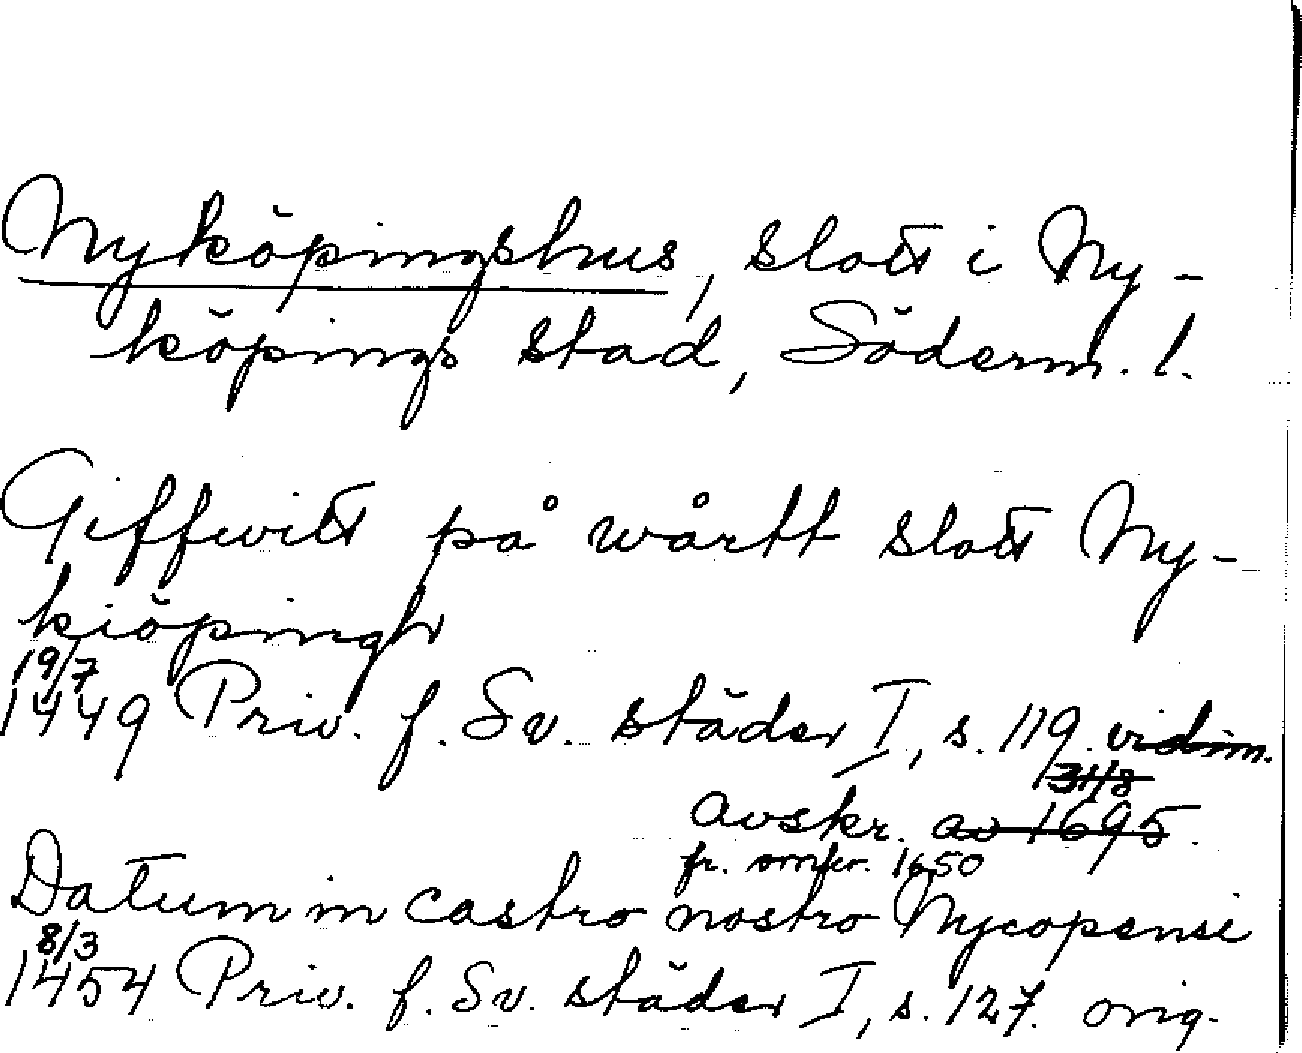 Nyköpingshus, slott i Ny-
köpings stad, Söderm. l.
Giffwitt på wårtt slott Ny-
kiöpingh
19/7
1449 Priv. f. Sv. städer I, s. 119. vidim.
31/8
avskr. av 1695.
fr. omkr. 1650
Datum in castro nostro Nycopensi
8/3
1454 Priv. f. Sv. städer I, s. 127. orig.